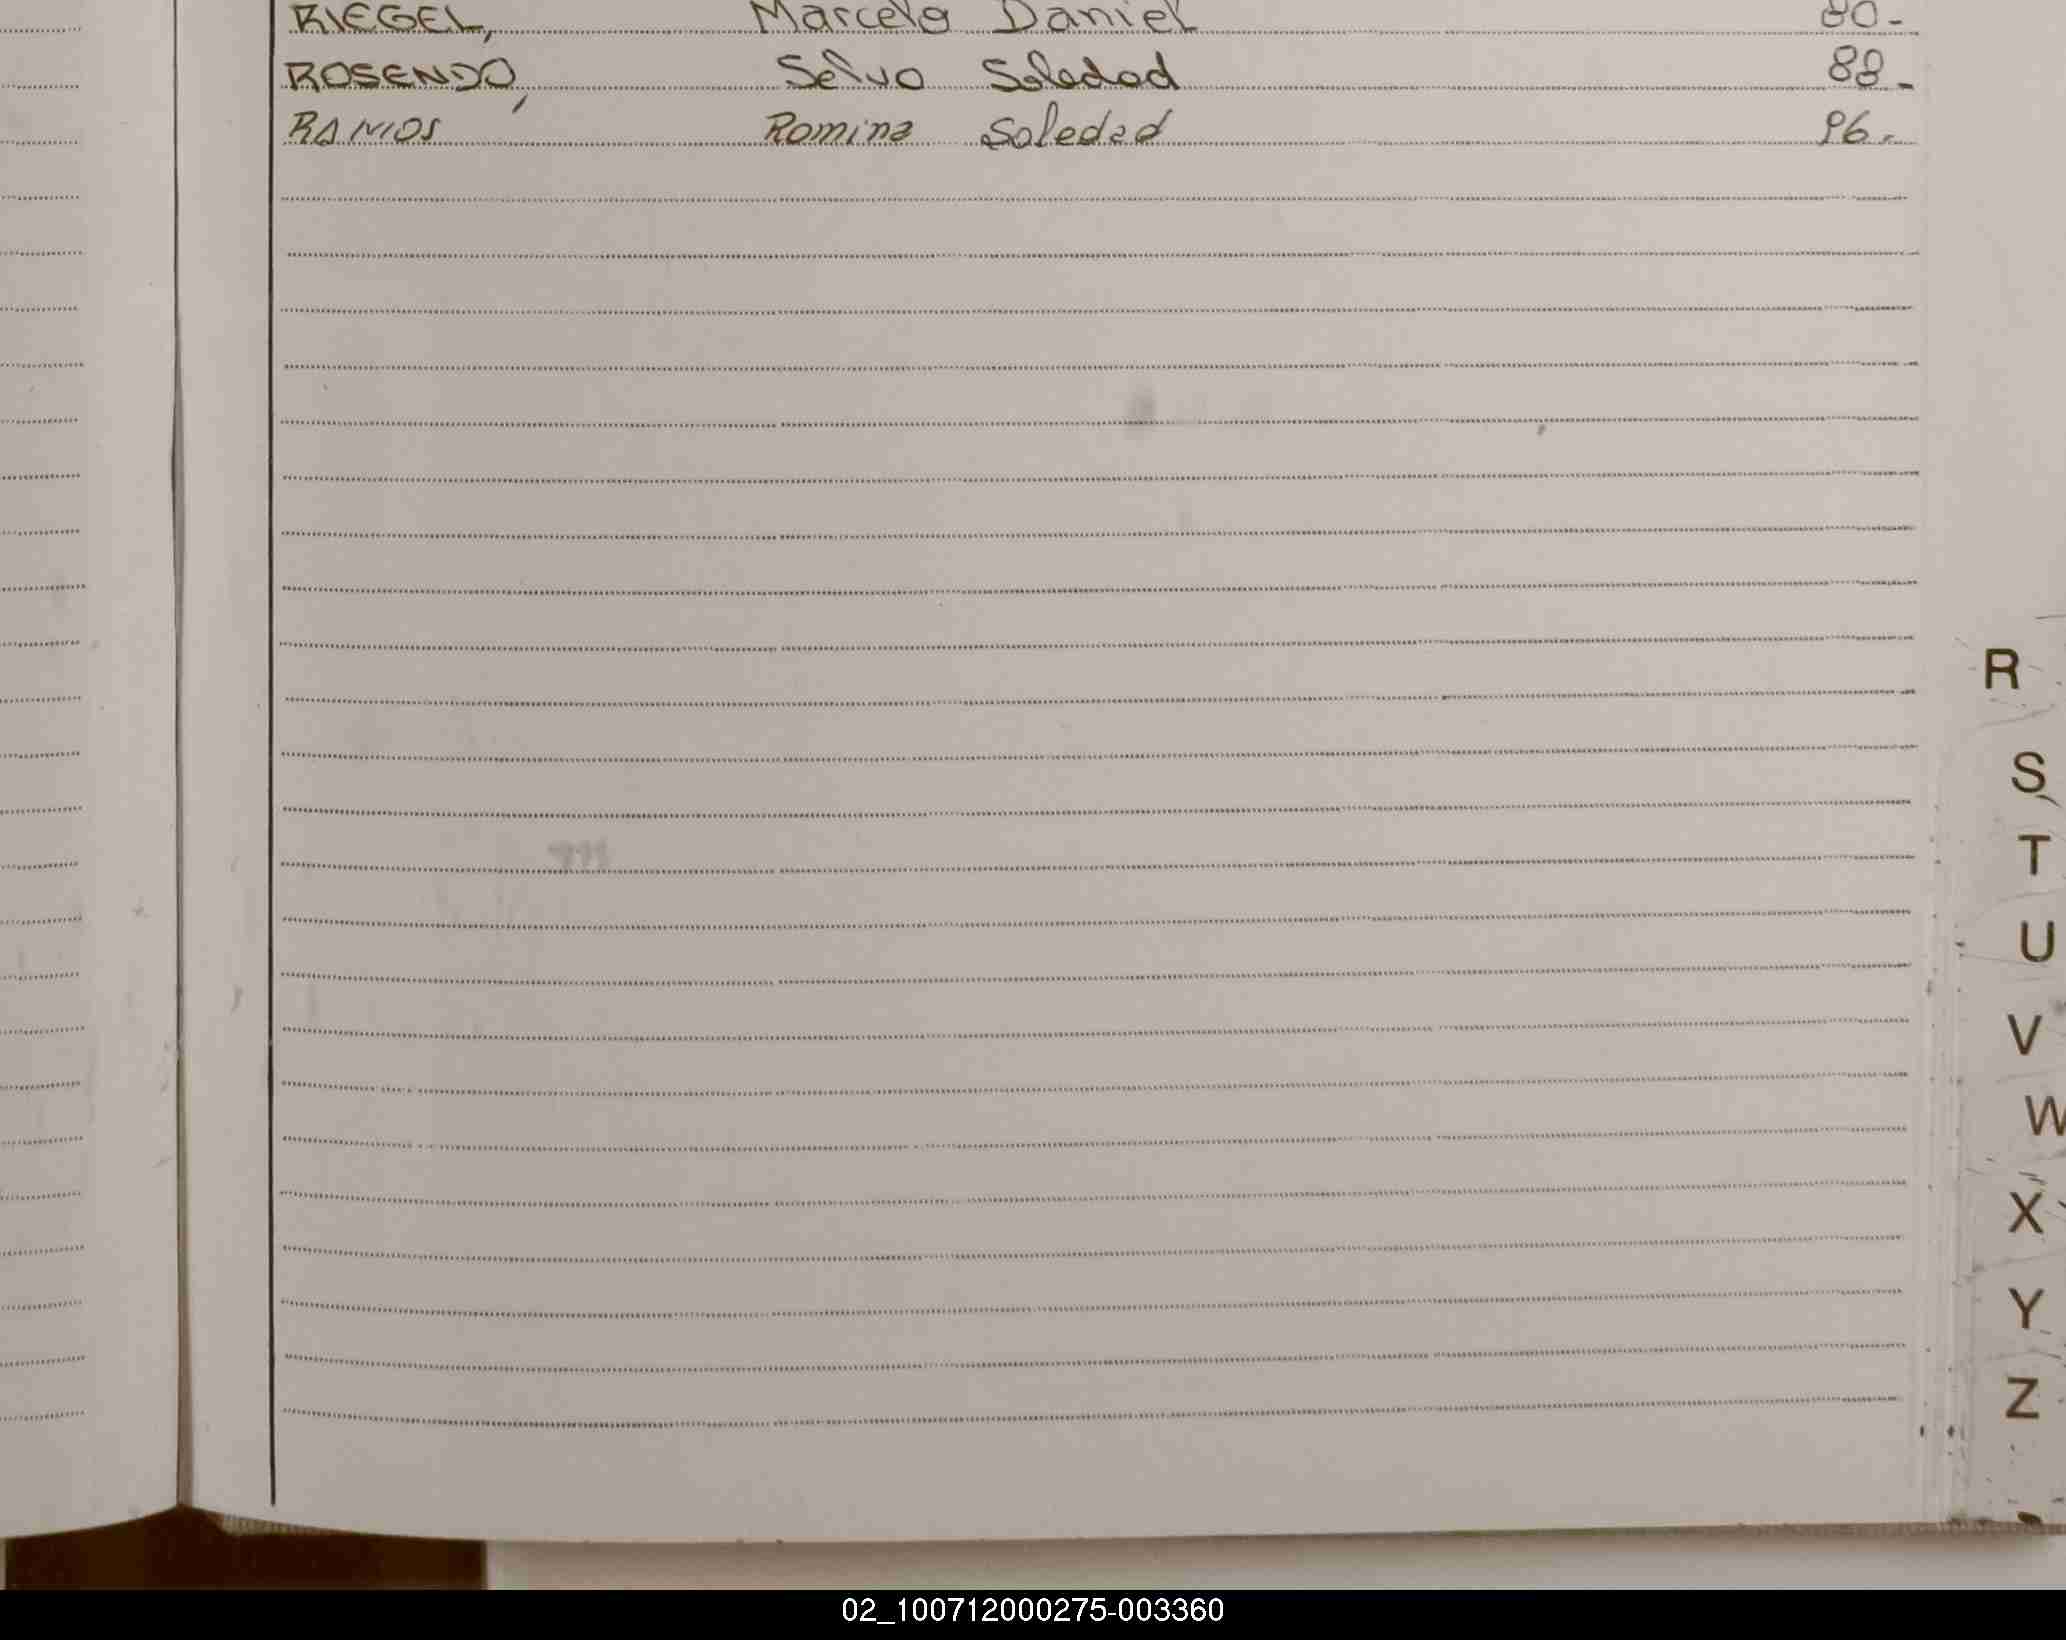 RIEGEL, Marcelo Daniel 80-
ROSENDO, Selva Soledad 88-
RAMOS Romina Soledad 96.
R
S
T
U
V
W
X
Y
Z
02_100712000275-003360